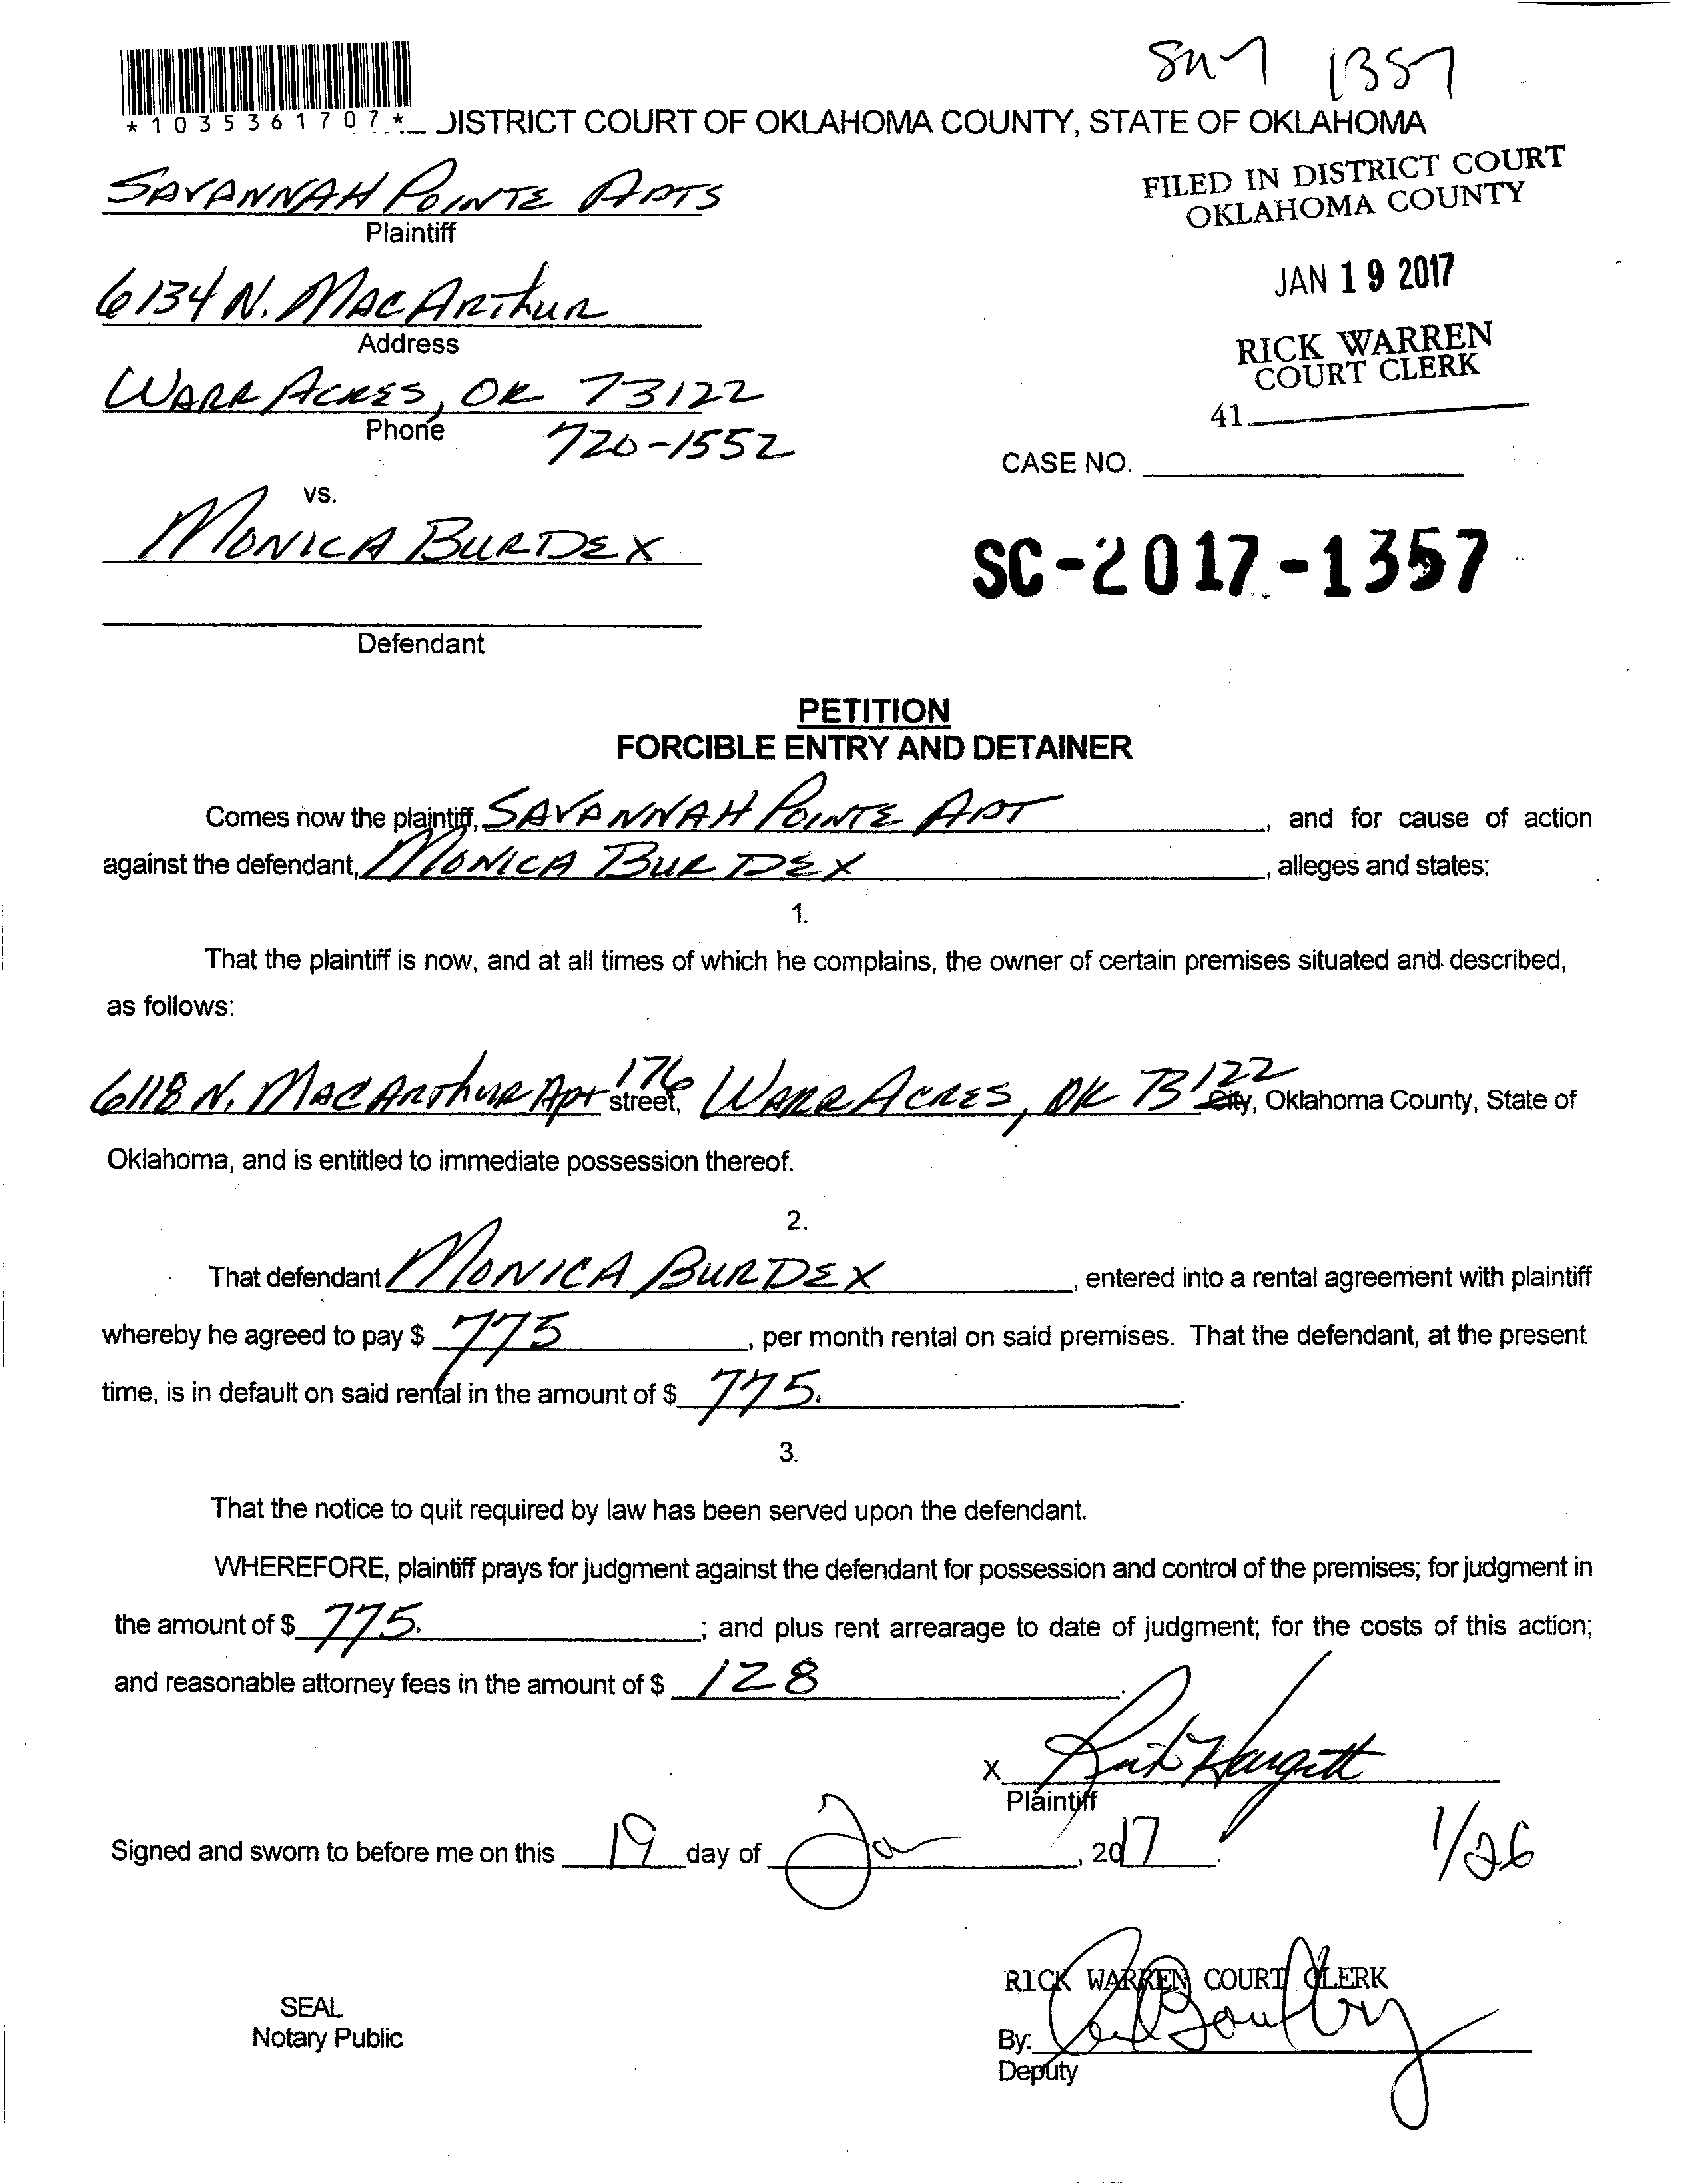 1357
*1035361707*
DISTRICT COURT OF OKLAHOMA COUNTY, STATE OF OKLAHOMA
SAVANNAH POINTE APTS
Plaintiff
FILED IN DISTRICT COURT
OKLAHOMA COUNTY
6134 N. MACARTHUR
Address
JAN 19 2017
RICK WARREN
COURT CLERK
WARR ACRES, OK 73122
Phone 720-1552
41
CASE NO.
vs.
MONICA BURDEX
SC-2017-1357
Defendant
PETITION
FORCIBLE ENTRY AND DETAINER
Comes now the plaintiff, SAVANNAH POINTE APT, and for cause of action
against the defendant, MONICA BURDEX, alleges and states:
1.
That the plaintiff is now, and at all times of which he complains, the owner of certain premises situated and described,
as follows:
6118 N. MACARTHUR APT 176 street, WARR ACRES, OK 73122 City, Oklahoma County, State of
Oklahoma, and is entitled to immediate possession thereof.
2.
That defendant MONICA BURDEX, entered into a rental agreement with plaintiff
whereby he agreed to pay $ 775, per month rental on said premises. That the defendant, at the present
time, is in default on said rental in the amount of $ 775.
3.
That the notice to quit required by law has been served upon the defendant.
WHEREFORE, plaintiff prays for judgment against the defendant for possession and control of the premises; for judgment in
the amount of $ 775. ; and plus rent arrearage to date of judgment; for the costs of this action;
and reasonable attorney fees in the amount of $ 128.
X
Plaintiff
Signed and sworn to before me on this 19 day of Ja, 2017
1/26
RICK WARREN COURT CLERK
SEAL
Notary Public
By:
Deputy